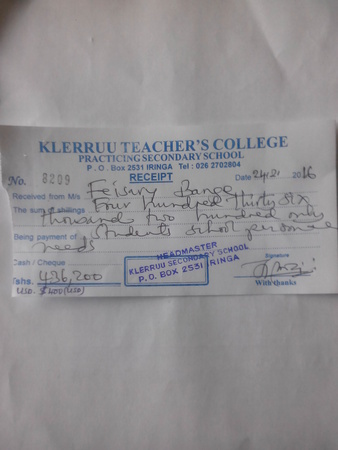 KLERRUU TEACHER'S COLLEGE
PRACTICING SECONDARY SCHOOL
P.O. Box 2531 IRINGA Tel: 026 2702804
No. 8209 RECEIPT Date 24/2/ 2016
Received from M/s Feisary
The sum of shillings Four hundred thirty six
thousand two hundred only
Being payment of Students school personal
needs
Cash / Cheque
HEADMASTER
KLERRUU SECONDARY SCHOOL
P.O. BOX 2531 IRINGA
Signature
Tshs. 436,200
With thanks